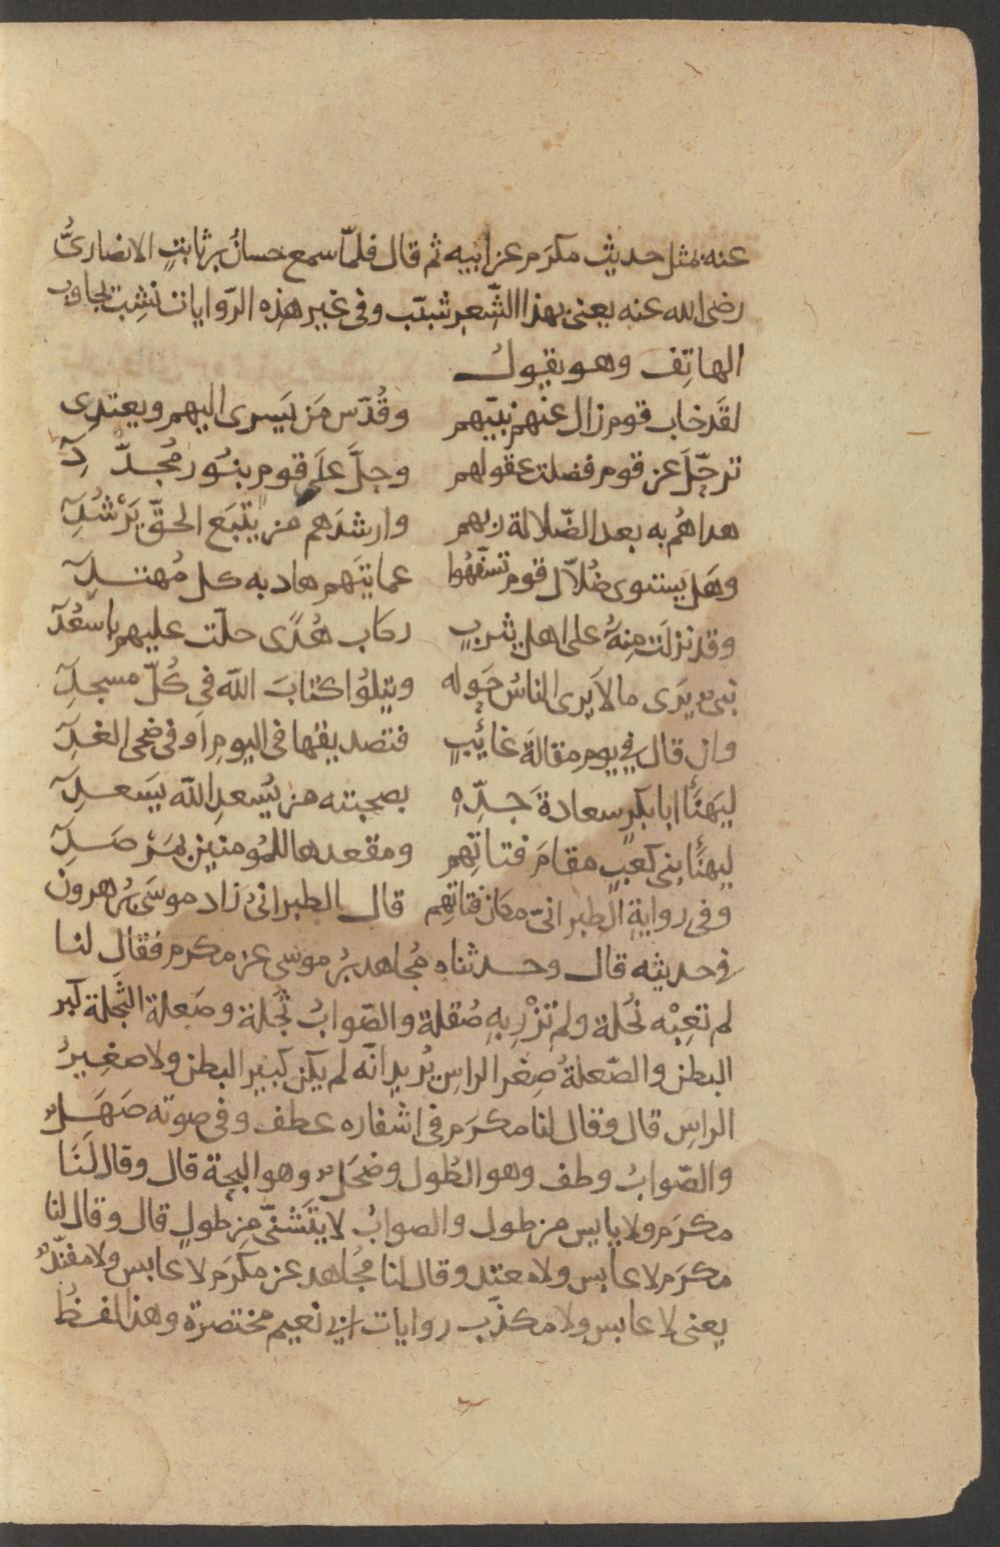 عنه بمثل حديث مكرم عن ابيه ثم قال فلمّا سمع حسانُ بن ثابتٍ الانصاريُّ
رضى الله عنه يعنى بهذا الشّعرِ شبّب وفى غير هذه الرّوايات نشِبَ يجاوب
الهاتِف وهو يقولُ
لقَد خاب قوم زال عنهم نبيّهم وقُدّس مَن يَسرى اليهم ويعتدِى
ترحّلَ عن قوم فضلت عقولهم وحلّ علَى قومٍ بنُور مُجدّدِ
هداهُم به بعد الضّلالة ربهم وارشدَهم من يتْبَع الحقّ يَرْشُدِ
وهَل يستوى ضُلاّل قوم تسفّهُوا عمايتَهم هاد به كل مُهتدِ
وقد نزلَت منهُ على اهل يثربٍ ركاب هُدًى حلّت عليهم باسعُدِ
نبى يرَى مالا يرى الناسُ حَوله ويتلُوا كتابَ اللّه فى كُلّ مسجدِ
وان قال فى يوم مقالةَ غائبٍ فتصديقها فى اليومِ اَو فى ضحى الغدِ
ليَهنَأ ابا بكرٍ سعادةَ جَدّهِ بصحبته من يُسعدِ اللّه يَسعدِ
ليهنَأ بنى كعبٍ مقامَ فتاتِهم ومقعدها للمُومنين بمَرْصَدِ
وفى روايةِ الطبرانىّ مكَان فتاتِهم قال الطبرانىُ زاد موسَى بن هرون
فى حديثه قال وحدثناه مُجاهد بن موسى عن مكرم فقال لنا
لم تعِبْه نُحلة ولم تزْرِ بهِ صُقلة والصّوابُ ثُجلة وصَعلة الثُجلة كبر
البطن والصّعلةُ صِغر الراسِ يُريد انّه لم يكن كبير البطن ولا صغيرُ
الراسِ قال وقال لنا مكرَم فى اشفاره عطف وفى صوته صَهَل
والصّوابُ وطف وهو الطُول وضحَل وهو البحة قال وقال لَنَا
مكرَم ولا يايس من طول والصوابُ لا يتَشنّى مِن طولٍ قال وقال لنا
مكرَم لا عابس ولا معتد وقال لنا مُجاهد عن مكرَم لا عابس ولا مفنّد
يعنى لا عابس ولا مكذّب روايات ابى نعيم مختصرة وهذا لفظُ